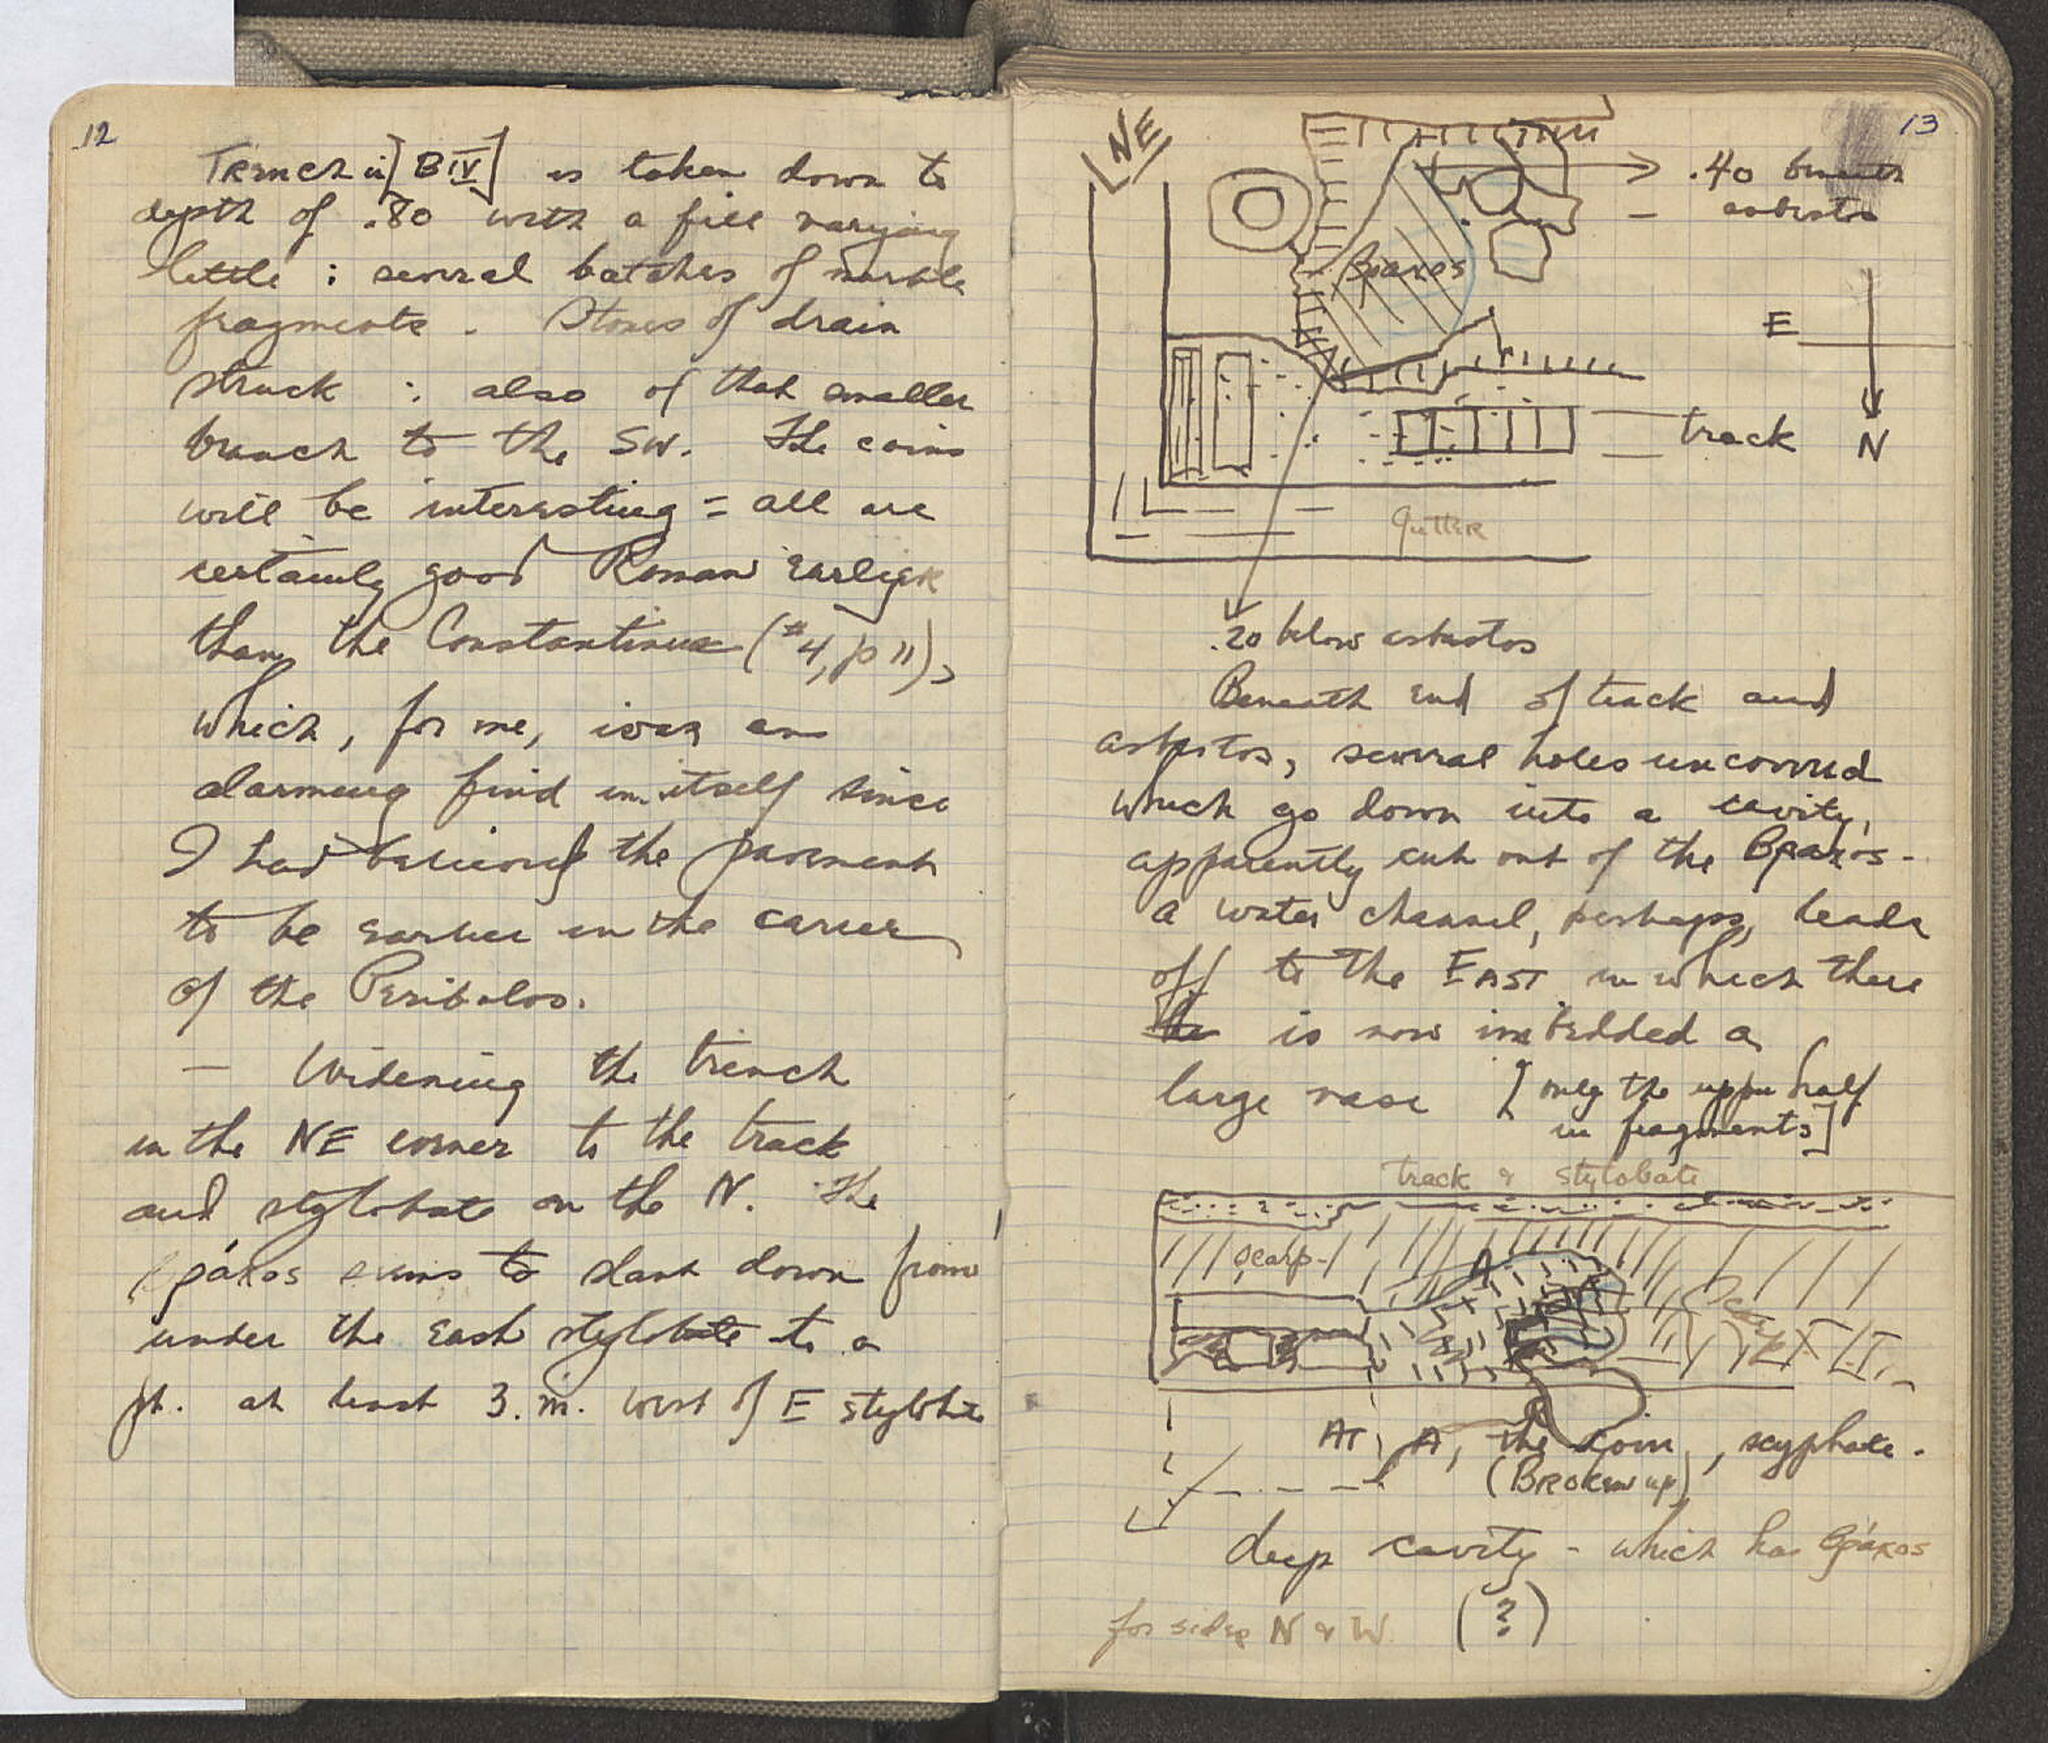 12
Trench in [BIV] is taken down to
depth of .80 with a fill varying
little : several batches of marble
fragments. Stones of drain
struck : also of that smaller
branch to the SW. The coins
will be interesting = all are
certainly good Roman earlier
than the Constantine (#4, p 11),
which, for me, was an
alarming find in itself since
I had believed the pavement
to be earlier in the career
of the Peribolos.
— Widening the trench
in the NE corner to the track
and stylobate on the N. The
βράχος seems to slant down from
under the East stylobate to a
pt. at least 3. m. west of E stylobate
13
NE
.40 beneath
asbestos
βραχος
E
track
N
Gutter
.20 below asbestos
Beneath end of track and
asbestos, several holes uncovered
which go down into a cavity,
apparently cut out of the Βραχος -
a water channel, perhaps, leads
off to the EAST in which there
is now imbedded a
large vase [only the upper half
in fragments]
track & stylobate
scarp
A
scarp
AT A, the coin, scyphate.
(Broken up)
deep cavity - which has βράχος
for sides N & W (?)